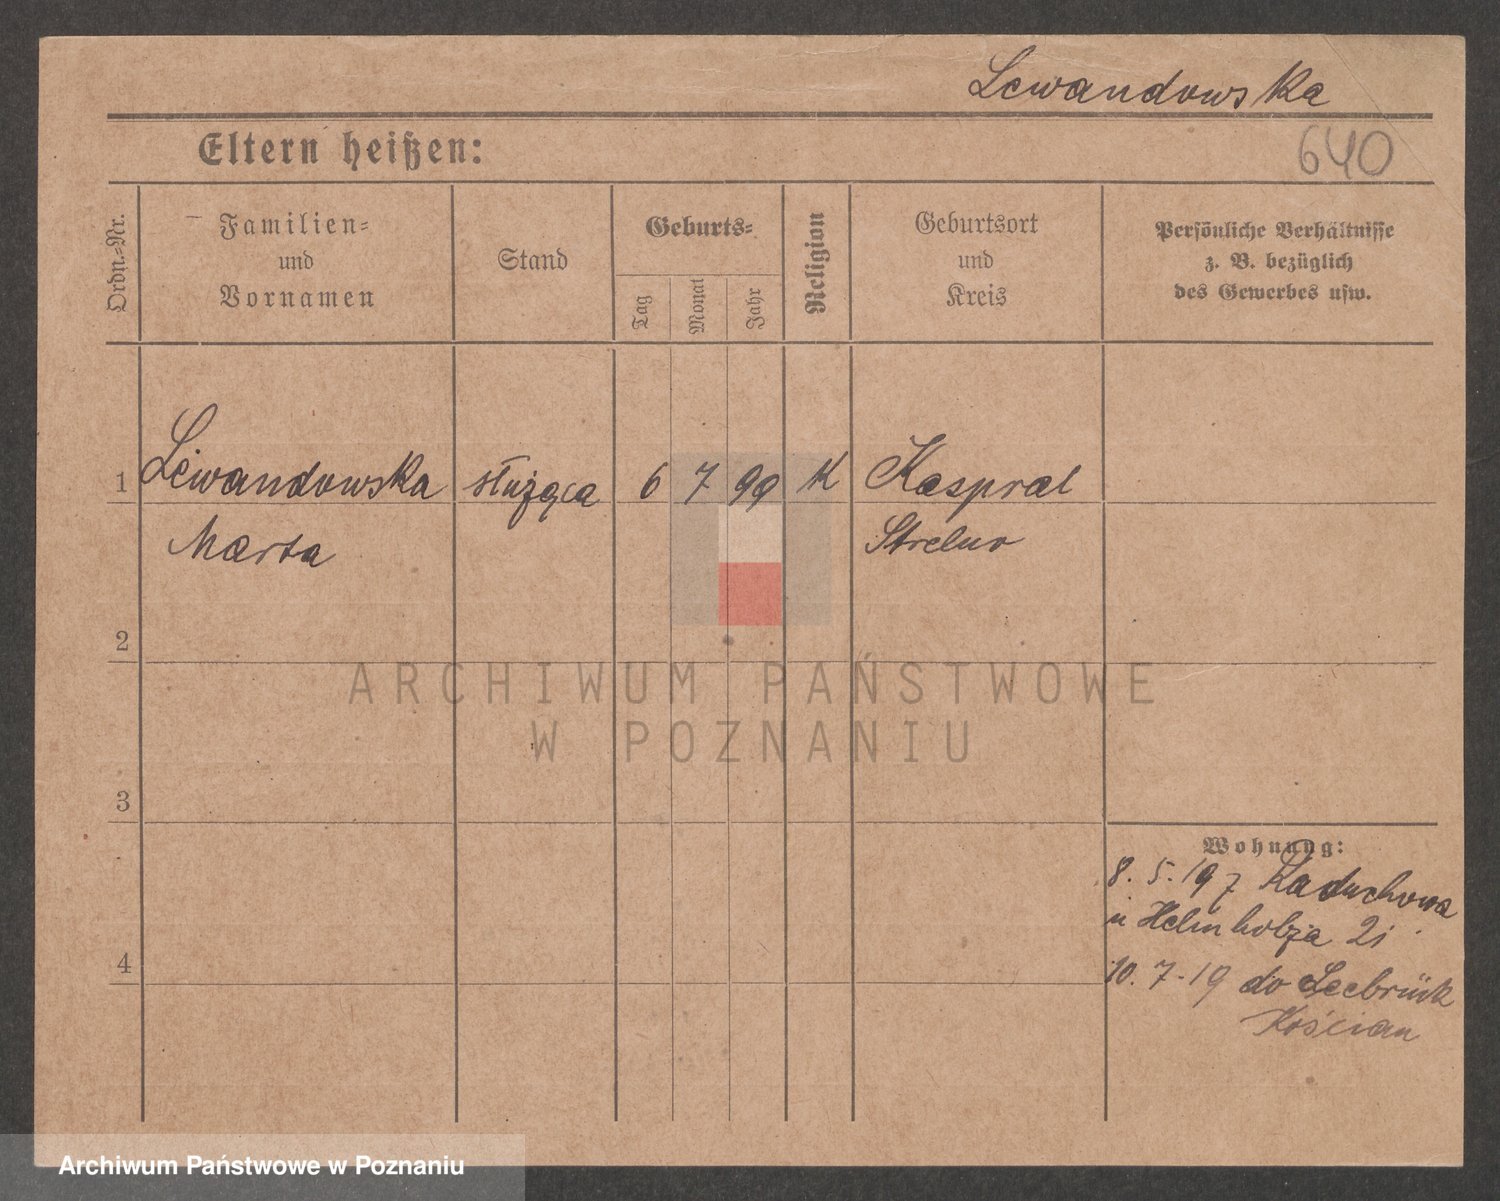 Lewandowska
640
Eltern heißen:
Ordn.-Nr.
Familien-
und
Vornamen
Stand
Geburts-
Tag
Monat
Jahr
Religion
Geburtsort
und
Kreis
Persönliche Verhältnisse
z. B. bezüglich
des Gewerbes usw.
1 Lewandowska służąca 6 7 99 K Kaspral
Marta Strelno
2
ARCHIWUM PAŃSTWOWE
W POZNANIU
3
Wohnung:
8. 5. 19 z
u Helmholza 21
4
10. 7-19 do Seebrück
Kościan
Archiwum Państwowe w Poznaniu